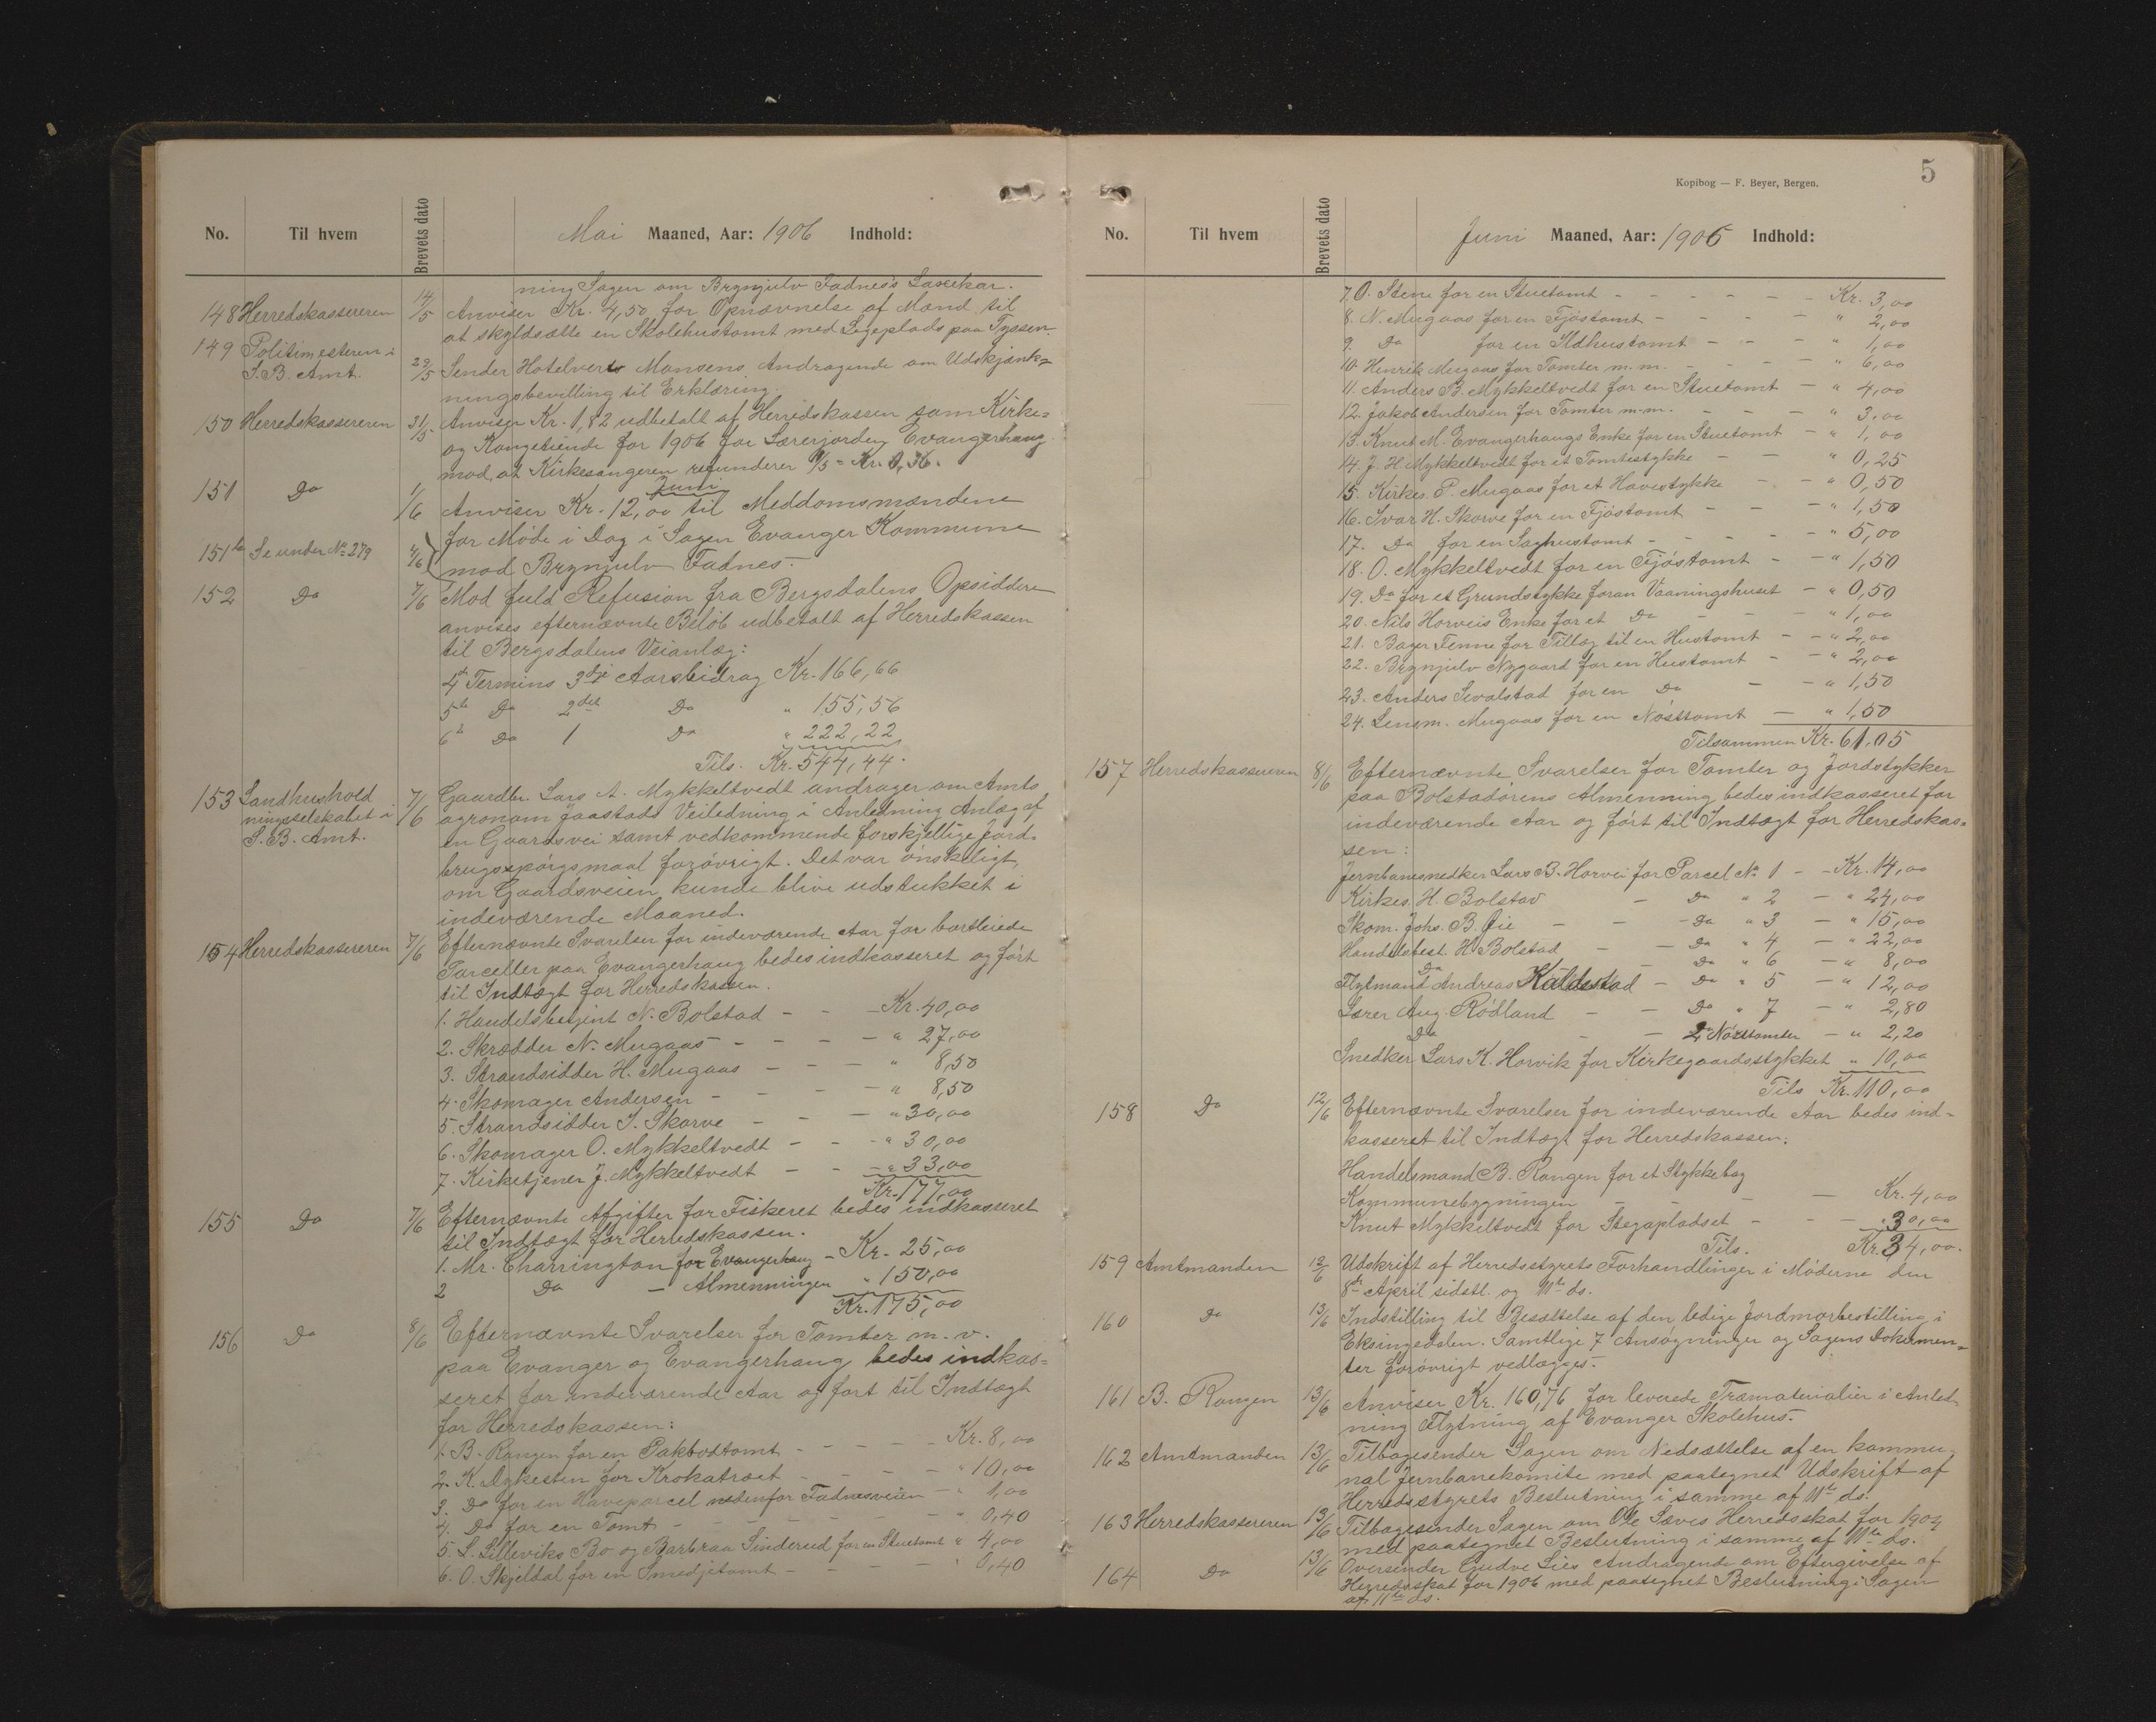 No. Til hvem Brevets dato Mai Maaned, Aar: 1906 Indhold:
ning Sagen om Brynjulv Fadnes's Lassekar.
148 Herredskassereren 14/5 Anviser Kr. 4,50 for Opnævnelse af Mænd til
at skyldsætte en Skolehustomt med Legeplads paa Fyssen.
149 Politimesteren i
S. B. Amt. 29/5 Sender Hotelvert Monsens Andragende om Udskjænk=
ningsbevilling til Erklæring.
150 Herredskassereren 31/5 Anviser Kr. 1,82 udbetalt af Herredskassen som Kirke=
og Kongetiende for 1906 for Lærerjorden Evangerhaug
mod at Kirkesangeren refunderer 1/5 = Kr. 0,36.
Juni
151 Do 1/6 Anviser Kr. 12,00 til Meddomsmændene
for Møde i Dag i Sagen Evanger Kommune
151b Se under No 279 4/6 mod Brynjulv Fadnes.
152 Do 7/6 Mod fuld Refusion fra Bergsdalens Opsiddere
anvises efternævnte Beløb udbetalt af Herredskassen
til Bergsdalens Veianlæg:
4de Termins 3dje Aarsbidrag Kr. 166,66
5te Do 2det Do " 155,56
6te Do 1 Do " 222,22
Tils. Kr. 544,44.
153 Landhushold
ningsselskabet i
S. B. Amt. 7/6 Gaardbr. Lars A. Mykkeltvedt andrager om Amts
agronom Jaastads Veiledning i Anledning Anlæg af
en Gaardsvei samt vedkommende forskjellige Jord=
brugsspørgsmaal forøvrigt. Det var ønskeligt,
om Gaardsveien kunde blive udstukket i
indeværende Maaned.
154 Herredskassereren 7/6 Efternævnte Svarelser for indeværende Aar for bortleiede
Parceller paa Evangerhaug bedes indkasseret og ført
til Indtægt for Herredskassen.
1. Handelsbetjent N. Bolstad - - - Kr. 40,00
2. Skrædder N. Mugaas - - - - - " 27,00
3. Strandsidder H. Mugaas - - - " 8,50
4. Skomager Andersen - - - - " 8,50
5. Strandsidder I. Skorve - - - " 30,00
6. Skomager O. Mykkeltvedt - - - " 30,00
7. Kirketjener J. Mykkeltvedt - - - " 33,00
Kr. 177,00
155 Do 7/6 Efternævnte Afgifter for Fiskeret bedes indkasseret
til Indtægt for Herredskassen.
1. Mr. Charrington for Evangerhaug - Kr. 25,00
2 Do - Almenningen " 150,00
Kr. 175,00
156 Do 8/6 Efternævnte Svarelser for Tomter m. v.
paa Evanger og Evangerhaug bedes indkas=
seret for indeværende Aar og ført til Indtægt
for Herredskassen:
1. B. Rongen for en Pakbodtomt - - - - Kr. 8,00
2. K. Dykesten for Krokatræet - - - - " 10,00
3. Do for en Haveparcel nedenfor Fadnesveien - " 1,00
4. Do for en Tomt - - - - - " 0,40
5. L. Lilleviks Bo og Barbraa Sinderud for en Stuetomt " 4,00
6. O. Skjeldal for en Smedjetomt - - - " 0,40
Kopibog — F. Beyer, Bergen. 5
No. Til hvem Brevets dato Juni Maaned, Aar: 1906 Indhold:
7. O. Stene for en Stuetomt - - - - - - Kr. 3,00
8. N. Mugaas for en Fjøstomt - - - - " 2,00
9. Do for en Ildhustomt - - - " 1,00
10. Henrik Mugaas for Tomter m. m. - - - " 6,00
11. Anders B. Mykkeltvedt for en Stuetomt - " 4,00
12. Jakob Andersen for Tomter m. m. - - - " 3,00
13. Knut M. Evangerhaugs Enke for en Stuetomt - " 1,00
14. J. H. Mykkeltvedt for et Tomtestykke - - " 0,25
15. Kirkes. P. Mugaas for et Havestykke - - " 0,50
16. Ivar H. Skorve for en Fjøstomt - - - " 1,50
17. Do for en Saghustomt - - - - " 5,00
18. O. Mykkeltvedt for en Fjøstomt - - " 1,50
19. Do for et Grundstykke foran Vaaningshuset - " 0,50
20. Nils Horveis Enke for et Do - - - " 1,00
21. Bager Tenne for Tillæg til en Hustomt - - " 2,00
22. Brynjulv Nygaard for en Hustomt - - " 2,00
23. Anders Sevalstad for en Do - - " 1,50
24. Lensm. Mugaas for en Nøsttomt - " 1,50
Tilsammen Kr. 61,05
157 Herredskassereren 8/6 Efternævnte Svarelser for Tomter og Jordstykker
paa Bolstadørens Almenning bedes indkasseret for
indeværende Aar og ført til Indtægt for Herredskas=
sen:
Jernbanesnedker Lars B. Horvei for Parcel No 1 - - Kr. 14,00
Kirkes. H. Bolstad - Do " 2 - " 24,00
Skom. Johs. B. Øie - - - Do " 3 - " 15,00
Handelsbest. H. Bolstad - - Do " 4 - " 22,00
Do - Do " 6 - " 8,00
Flytmand Andreas Kaldestad - Do " 5 - " 12,00
Lærer Aug. Rødland - - Do " 7 - " 2,80
Do - - 2 Nøsttomter - " 2,20
Snedker Lars K. Horvik for Kirkegaardsstykket " 10,00
Tils Kr. 110,00
158 Do 12/6 Efternævnte Svarelser for indeværende Aar bedes ind-
kasseret til Indtægt for Herredskassen:
Handelsmand B. Rongen for et Stykke bag
Kommunebygningen - - - - Kr. 4,00
Knut Mykkeltvedt for Stegapladset - - - " 30,00
Tils. Kr. 34,00.
159 Amtmanden 12/6 Udskrift af Herredsstyrets Forhandlinger i Møderne den
8de April sidstl. og 11te ds.
160 Do 13/6 Indstilling til Besættelse af den ledige Jordmorbestilling i
Eksingedalen. Samtlige 7 Ansøgninger og Sagens Dokumen=
ter forøvrigt vedlægges.
161 B. Rongen 13/6 Anviser Kr. 160,76 for leverede Træmaterialier i Anled-
ning Flytning af Evanger Skolehus.
162 Amtmanden 13/6 Tilbagesender Sagen om Nedsættelse af en kommu-
nal Jernbanekomite med paategnet Udskrift af
Herredsstyrets Beslutning i samme af 11te ds.
163 Herredskassereren 13/6 Tilbagesender Sagen om Ole Sæves Herredsskat for 1904
med paategnet Beslutning i samme af 11te ds.
164 Do 13/6 Oversender Gudve Lies Andragende om Eftergivelse af
Herredsskat for 1906 med paategnet Beslutning i Sagen
af 11te ds.